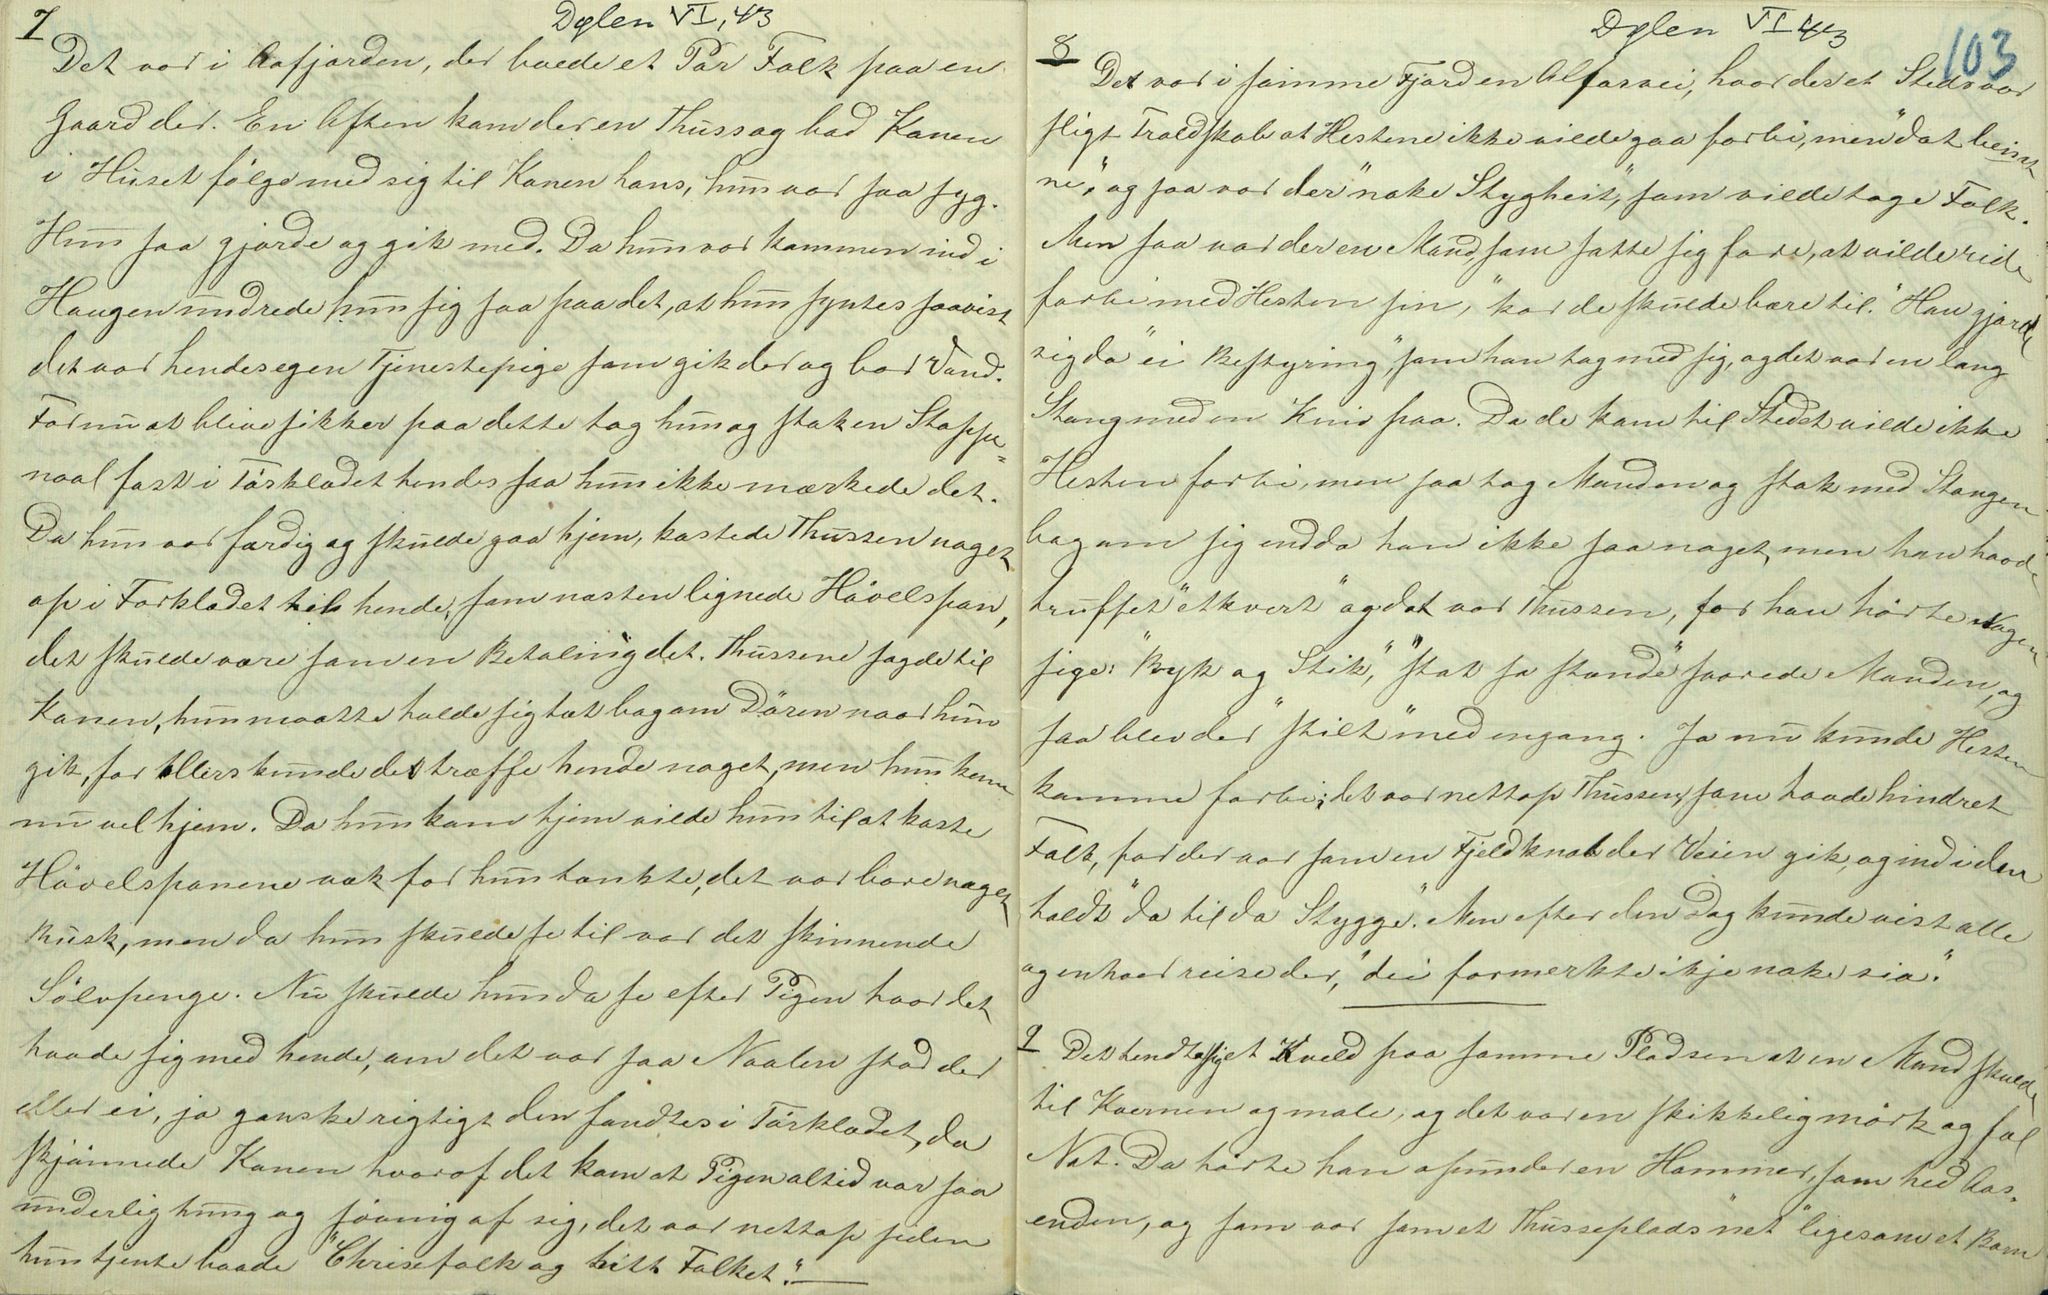 7
Dølen VI, 43
Det var i Aafjorden, der boede et Par Folk paa en
Gaard der. En Aften kom der en Thuss og bad Konen
i Huset følge med sig til Konen hans, hun var saa syg.
Hun saa gjorde og gik med. Da hun var kommen ind i
Haugen undrede hun sig saa paa det, at hun syntes saavist
det var hendes egen Tjenestepige som gik der og bar Vand.
For nu at blive sikker paa dette tog hun og stak en Stoppe-
naal fast i Tørklædet hendes saa hun ikke mærkede det.
Da hun var færdig og skulde gaa hjem, kastede Thussen noget
op i Forklædet til hende, som næsten lignede Høvelspon,
det skulde være som en Betaling det. Thussene sagde til
Konen, hun maatte holde sig tæt bagom Døren naar hun
gik, for ellers kunde det træffe hende noget, men hun kom
nu vel hjem. Da hun kom hjem vilde hun til at kaste
Høvelsponene væk for hun tænkte, det var bare noget
Rusk, men da hun skulde se til var det skinnende
Sølvpenge. Nu skulde hun da se efter Pigen hvor det
havde sig med hende, om det var saa Naalen stod der
eller ei, ja ganske rigtigt den fandtes i Tørklædet, da
skjønnede Konen hvoraf det kom at Pigen altid var saa
underlig tung og søvnig af sig, det var nettop siden
hun tjente baade "Chrisefolk og hitt Folket."
Dølen VI 43
103
8
Det var i samme Fjorden Alfarvei, hvor der et Sted var
sligt Troldskab at Hestene ikke vilde gaa forbi, men "dat beisst
ne," og saa var der "noke Stygheit," som vilde tage Folk.
Men saa var der en Mand som satte sig fore, at vilde ride
forbi med Hesten sin, "kor de skulde bære til." Han gjorde
sig da "ei Bestyring", som han tog med sig, og det var en lang
Stang med en Kniv paa. Da de kom til Stedet vilde ikke
Hesten forbi, men saa tog Manden og stak med Stangen
bagom sig endda han ikke saa noget, men han havde
truffet "etkvert" og dat var Thussen, for han hørte Nogen
sige: "Ryk og Stik," "stat so stande" svarede Manden, og
saa blev der "stilt" med engang. Ja nu kunde Hesten
komme forbi; det var nettop Thussen, som havde hindret
Folk, for der var som en Fjeldknat der Veien gik, og ind i den
holdt "da til da Stygge." Men efter den Dag kunde vist alle
og enhver reise der, "dei formerkte ikje noke sia."
9
Det hendte sig et Kveld paa samme Pladsen at en Mand skulde
til Kvernen og male, og det var en skikkelig mørk og fæl
Nat. Da hørte han opunder en Hammer, som hed Aas-
enden, og som var som et Thusseplads "net" ligesom et Barn